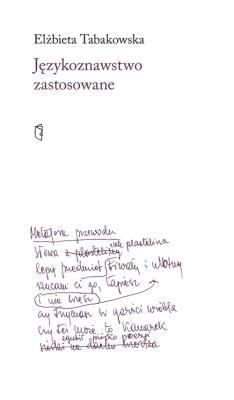 Elżbieta Tabakowska
Językoznawstwo
zastosowane
Metafora przewodu
słowa z plasteliny jak plastelina
lepię przedmiot trwały i ulotny
rzucam ci go, łapiesz
i nie wiesz
czy trzymasz w garści wróbla
czy też może to kanarek
zgubił piórko poezji
siedzi na dachu